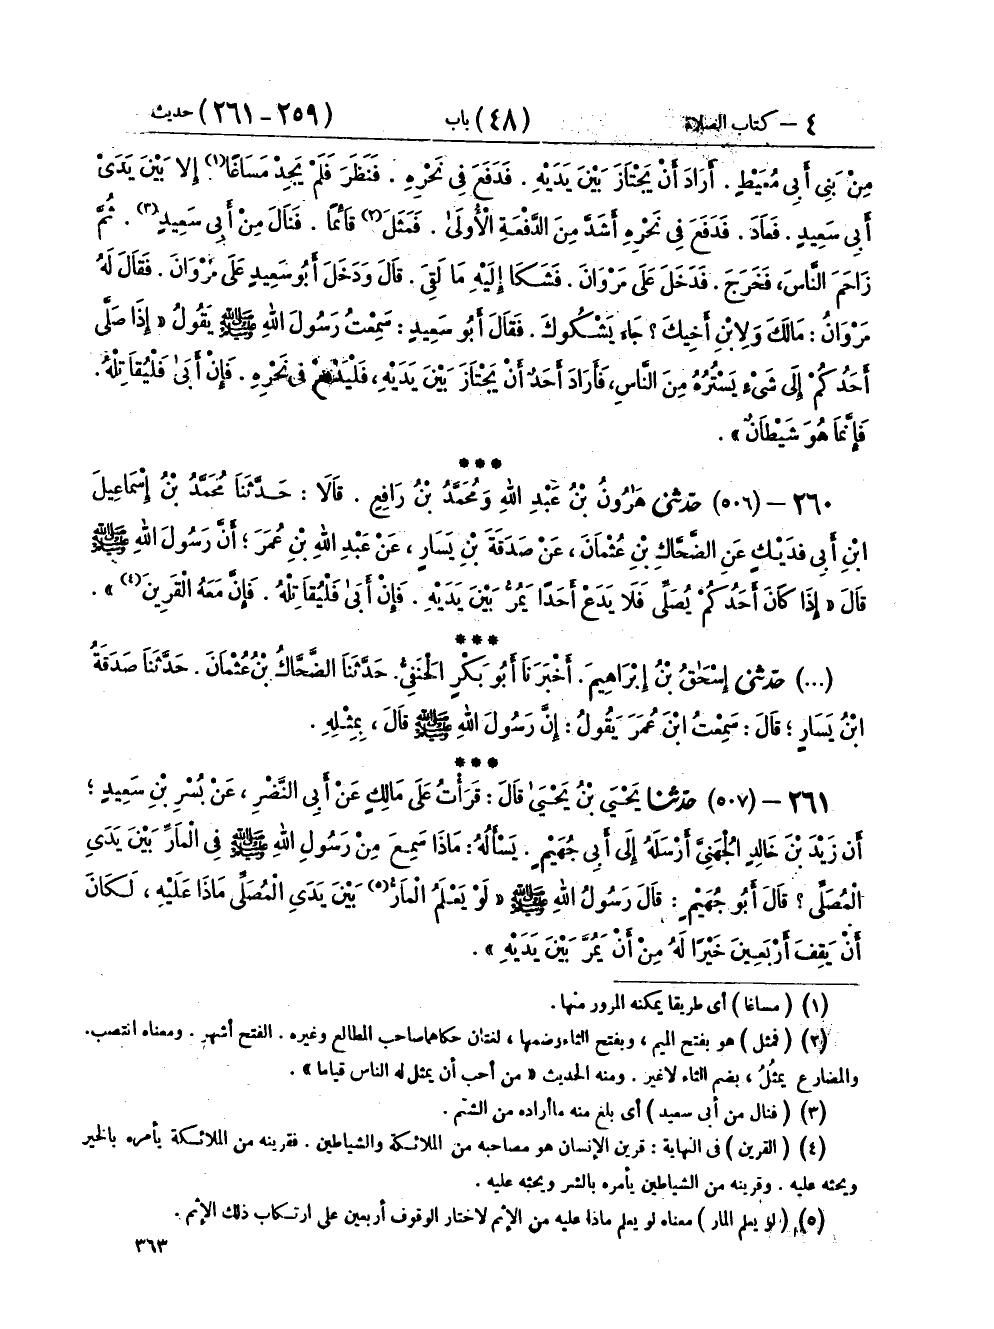 ٤ – كتاب الصلاة (٤٨) باب (٢٥٩ – ٢٦١) حديث
مِنْ بَنِي أَبِي مُعَيْطٍ . أَرَادَ أَنْ يَجْتَازَ بَيْنَ يَدَيْهِ . فَدَفَعَ فِي نَحْرِهِ . فَنَظَرَ فَلَمْ يَجِدْ مَسَاغًا(١) إِلَّا بَيْنَ يَدَىْ
أَبِي سَعِيدٍ . فَعَادَ . فَدَفَعَ فِي نَحْرِهِ أَشَدَّ مِنَ الدَّفْعَةِ الْأُولَىٰ . فَمَثَلَ(٢) قَائِمًا . فَنَالَ مِنْ أَبِي سَعِيدٍ(٣) . ثُمَّ
زَاحَمَ النَّاسَ، فَخَرَجَ . فَدَخَلَ عَلَى مَرْوَانَ . فَشَكَا إِلَيْهِ مَا لَقِيَ . قَالَ وَدَخَلَ أَبُو سَعِيدٍ عَلَى مَرْوَانَ . فَقَالَ لَهُ
مَرْوَانُ : مَالَكَ وَلِابْنِ أَخِيكَ ؟ جَاءَ يَشْكُوكَ . فَقَالَ أَبُو سَعِيدٍ : سَمِعْتُ رَسُولَ اللهِ ﷺ يَقُولُ « إِذَا صَلَّى
أَحَدُكُمْ إِلَى شَيْءٍ يَسْتُرُهُ مِنَ النَّاسِ، فَأَرَادَ أَحَدٌ أَنْ يَجْتَازَ بَيْنَ يَدَيْهِ، فَلْيَدْفَعْ فِي نَحْرِهِ . فَإِنْ أَبَىٰ فَلْيُقَاتِلْهُ .
فَإِنَّمَا هُوَ شَيْطَانٌ » .
***
٢٦٠ – (٥٠٦) حَدَّثَنِي هَارُونُ بْنُ عَبْدِ اللهِ وَمُحَمَّدُ بْنُ رَافِعٍ . قَالَا : حَدَّثَنَا مُحَمَّدُ بْنُ إِسْمَاعِيلَ
ابْنِ أَبِي فُدَيْكٍ عَنِ الضَّحَّاكِ بْنِ عُثْمَانَ ، عَنْ صَدَقَةَ بْنِ يَسَارٍ ، عَنْ عَبْدِ اللهِ بْنِ عُمَرَ ؛ أَنَّ رَسُولَ اللهِ ﷺ
قَالَ « إِذَا كَانَ أَحَدُكُمْ يُصَلِّي فَلَا يَدَعْ أَحَدًا يَمُرُّ بَيْنَ يَدَيْهِ . فَإِنْ أَبَىٰ فَلْيُقَاتِلْهُ . فَإِنَّ مَعَهُ الْقَرِينَ(٤) » .
***
(...) حَدَّثَنِي إِسْحَاقُ بْنُ إِبْرَاهِيمَ . أَخْبَرَنَا أَبُو بَكْرٍ الْحَنَفِيُّ . حَدَّثَنَا الضَّحَّاكُ بْنُ عُثْمَانَ . حَدَّثَنَا صَدَقَةُ
ابْنُ يَسَارٍ ؛ قَالَ : سَمِعْتُ ابْنَ عُمَرَ يَقُولُ : إِنَّ رَسُولَ اللهِ ﷺ قَالَ ، بِمِثْلِهِ .
***
٢٦١ – (٥٠٧) حَدَّثَنَا يَحْيَىٰ بْنُ يَحْيَىٰ قَالَ : قَرَأْتُ عَلَى مَالِكٍ عَنْ أَبِي النَّضْرِ ، عَنْ بُسْرِ بْنِ سَعِيدٍ ؛
أَن زَيْدَ بْنَ خَالِدٍ الْجُهَنِيَّ أَرْسَلَهُ إِلَى أَبِي جُهَيْمٍ . يَسْأَلُهُ : مَاذَا سَمِعَ مِنْ رَسُولِ اللهِ ﷺ فِي الْمَارِّ بَيْنَ يَدَىِ
الْمُصَلِّي ؟ قَالَ أَبُو جُهَيْمٍ : قَالَ رَسُولُ اللهِ ﷺ « لَوْ يَعْلَمُ الْمَارُّ(٥) بَيْنَ يَدَىِ الْمُصَلِّي مَاذَا عَلَيْهِ ، لَكَانَ
أَنْ يَقِفَ أَرْبَعِينَ خَيْرًا لَهُ مِنْ أَنْ يَمُرَّ بَيْنَ يَدَيْهِ » .
(١) ( مساغا ) أى طريقا يمكنه المرور منها .
(٢) ( فمثل ) هو بفتح الميم ، وبفتح الثاء وضمها ، لغتان حكاهما صاحب المطالع وغيره . الفتح أشهر . ومعناه انتصب.
والمضارع يمثُلُ ، بضم الثاء لا غير . ومنه الحديث « من أحب أن يمثل له الناس قياما » .
(٣) ( فنال من أبى سعيد ) أى بلغ منه ما أراده من الشتم .
(٤) ( القرين ) فى النهاية : قرين الإنسان هو مصاحبه من الملائكة والشياطين . فقرينه من الملائكة يأمره بالخير
ويحثه عليه . وقرينه من الشياطين يأمره بالشر ويحثه عليه .
(٥) ( لو يعلم المار ) معناه لو يعلم ماذا عليه من الإثم لاختار الوقوف أربعين على ارتكاب ذلك الإثم .
٣٦٣